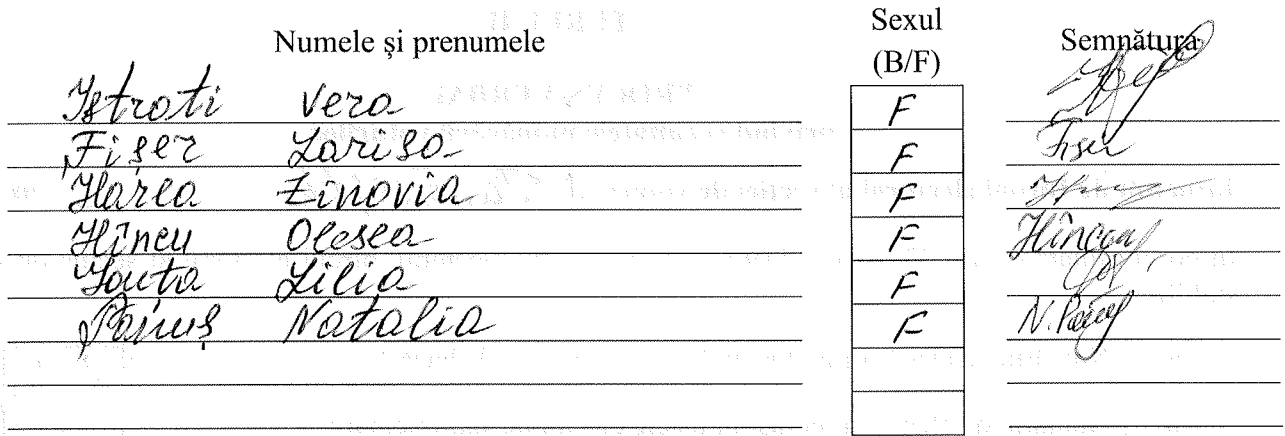 Numele și prenumele Sexul (B/F) Semnătura
Istrati Vera F
Fișer Larisa F Fișer
Harea Zinovia F
Hîncu Olesea F Hîncu
Lilia F
Păinuș Natalia F